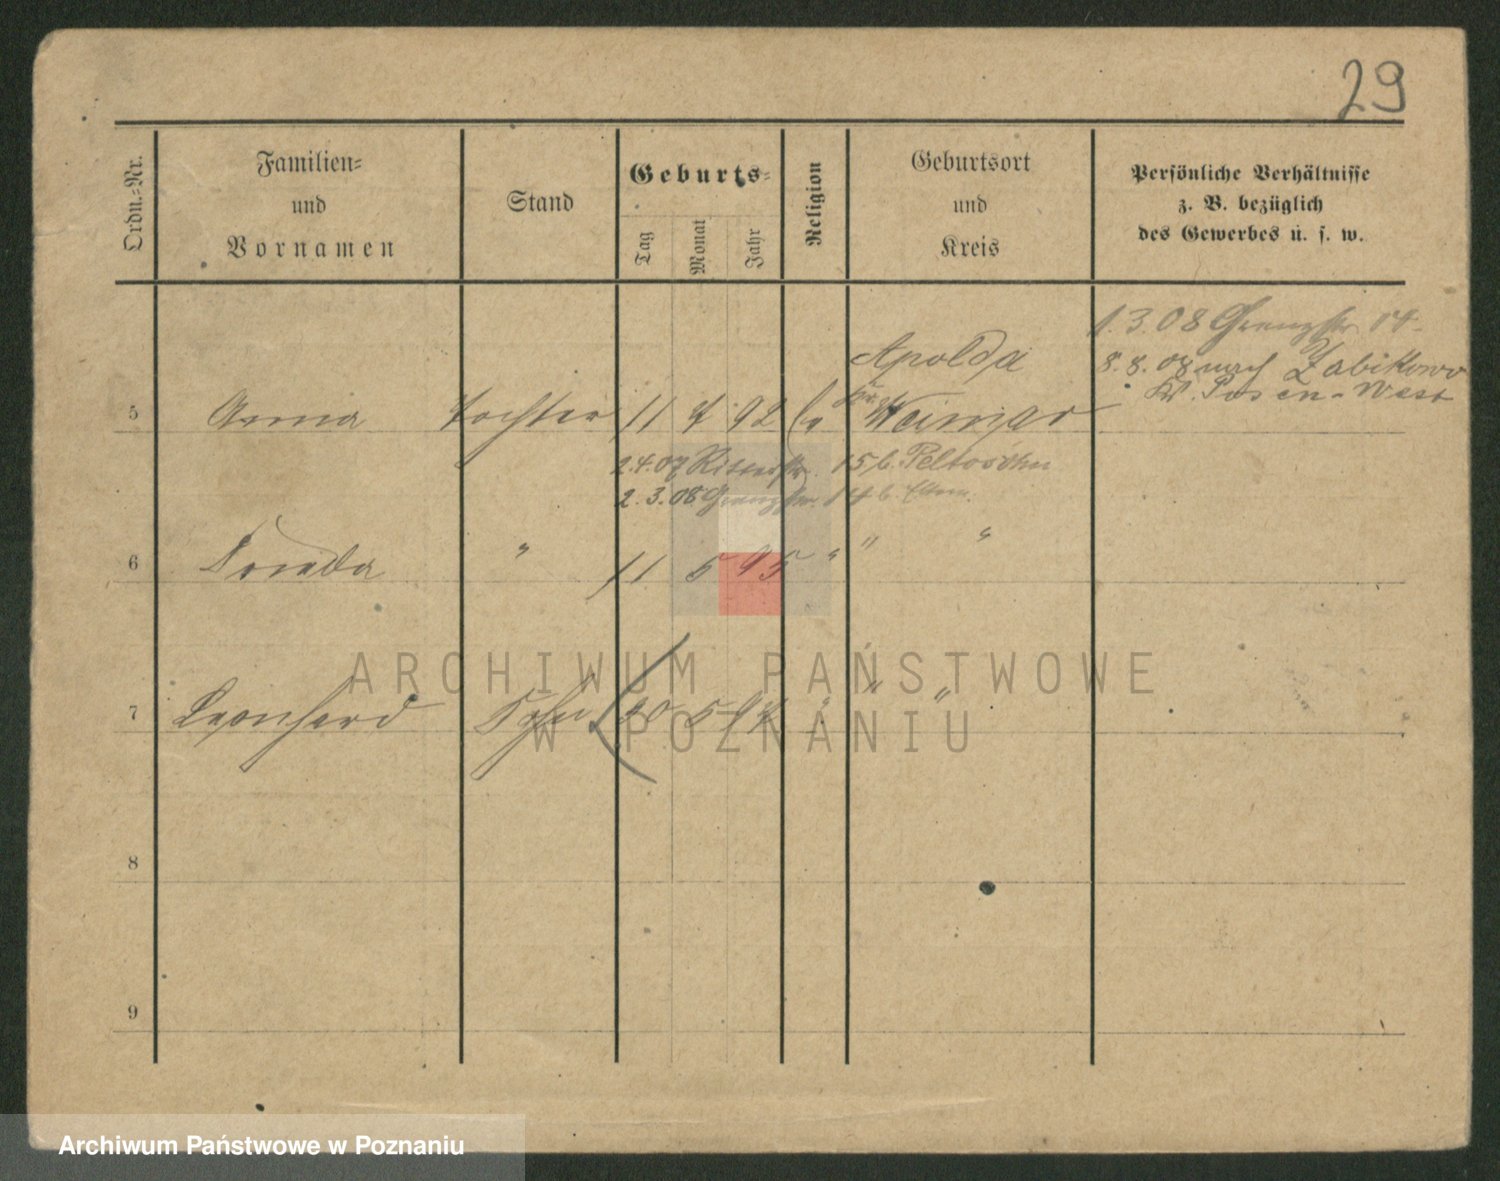 29
Ordn.=Nr.
Familien=
und
Vornamen
Stand
Geburts=
Tag
Monat
Jahr
Religion
Geburtsort
und
Kreis
Persönliche Verhältnisse
z. B. bezüglich
des Gewerbes u. s. w.
1.3.08 Grenzstr. 14.
Apolda
8.8.08 nach Zabikowo
Kr. Posen-West
5 Anna Tochter 11 92 Kr. Weimar
2.4.07 Ritterstr. 15 b.
2.3.08 Grenzstr. 14 b. Eltern.
6 Frieda " 11 5 95 " " "
7 Leonhard Sohn 5 " " "
8
9
ARCHIWUM PAŃSTWOWE
W POZNANIU
Archiwum Państwowe w Poznaniu